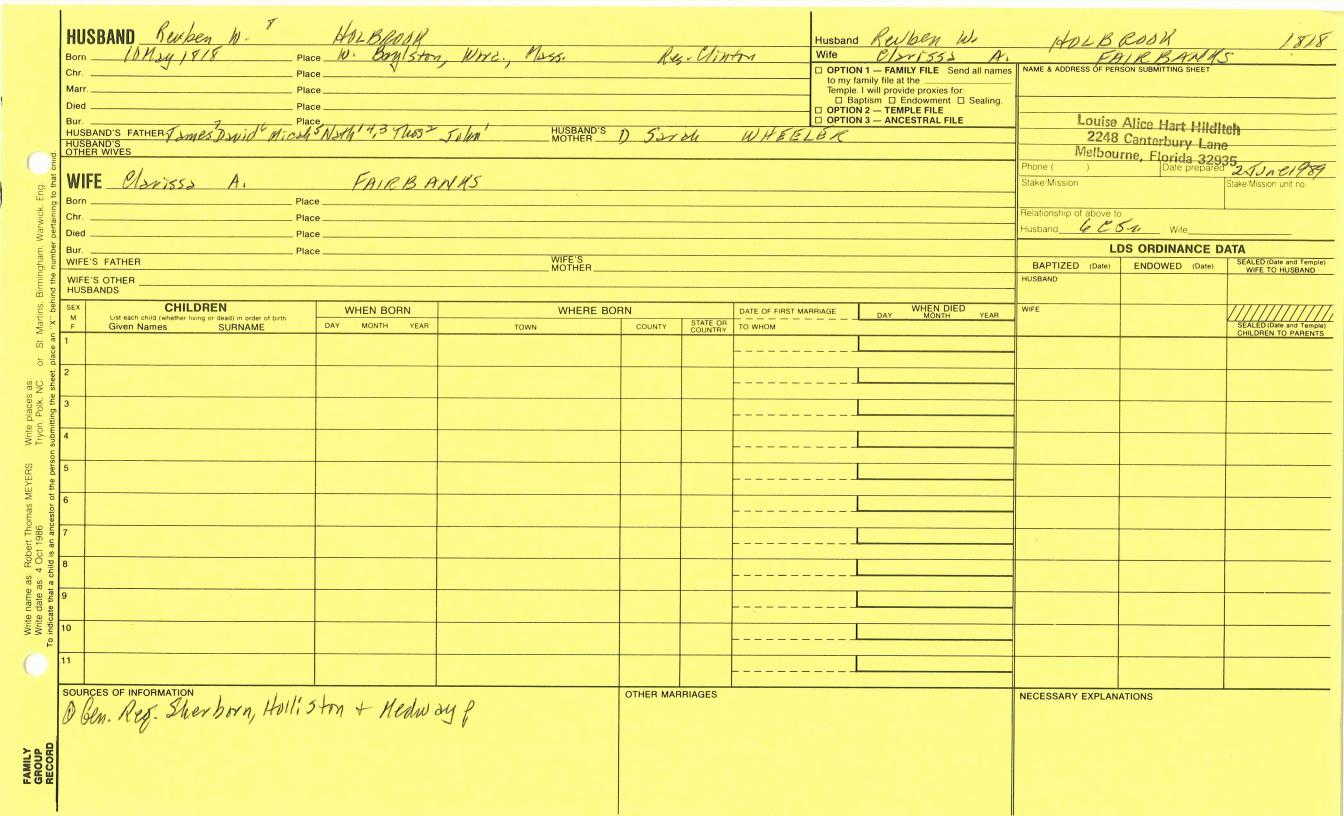 HUSBAND Reuben W. 8 HOLBROOK
Born 10 May 1818 Place W. Boylston, Worc., Mass. Res. Clinton
Chr. Place
Marr. Place
Died Place
Bur. Place
HUSBAND'S FATHER James7 David6 Micah5 Nath'l4,3 Thos2 John1 HUSBAND'S MOTHER D Sarah WHEELER
HUSBAND'S OTHER WIVES
WIFE Clarissa A. FAIRBANKS
Born Place
Chr. Place
Died Place
Bur. Place
WIFE'S FATHER WIFE'S MOTHER
WIFE'S OTHER HUSBANDS
Husband Reuben W. HOLBROOK 1818
Wife Clarissa A. FAIRBANKS
☐ OPTION 1 — FAMILY FILE Send all names
to my family file at the
Temple. I will provide proxies for
☐ Baptism ☐ Endowment ☐ Sealing.
☐ OPTION 2 — TEMPLE FILE
☐ OPTION 3 — ANCESTRAL FILE
NAME & ADDRESS OF PERSON SUBMITTING SHEET
Louise Alice Hart Hilditch
2248 Canterbury Lane
Melbourne, Florida 32935
Phone ( ) Date prepared 2 June 1989
Stake/Mission Stake/Mission unit no.
Relationship of above to
Husband 6C5r Wife
LDS ORDINANCE DATA
BAPTIZED (Date) ENDOWED (Date) SEALED (Date and Temple) WIFE TO HUSBAND
HUSBAND
WIFE
SEALED (Date and Temple) CHILDREN TO PARENTS
SEX M F
CHILDREN
List each child (whether living or dead) in order of birth
Given Names SURNAME
WHEN BORN
DAY MONTH YEAR
WHERE BORN
TOWN COUNTY STATE OR COUNTRY
DATE OF FIRST MARRIAGE
TO WHOM
WHEN DIED
DAY MONTH YEAR
1
2
3
4
5
6
7
8
9
10
11
SOURCES OF INFORMATION
① Gen. Reg. Sherborn, Holliston + Medway p
OTHER MARRIAGES
NECESSARY EXPLANATIONS
Write name as: Robert Thomas MEYERS Write places as:
Write date as: 4 Oct 1986 Tryon, Polk, NC or St. Martins, Birmingham, Warwick, Eng.
To indicate that a child is an ancestor of the person submitting the sheet, place an "X" behind the number pertaining to that child.
FAMILY
GROUP
RECORD